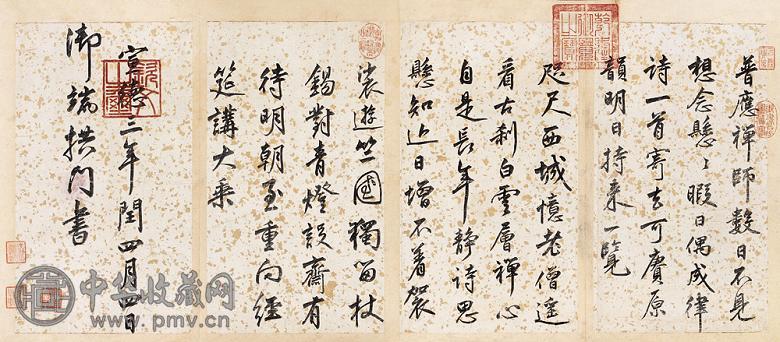 普應禪師數日不見
想念懸〻暇日偶成律
詩一首寄去可賡原
韻明日持来一覽
咫尺西城憶老僧遥
看古刹白雲層禪心
自是長年静詩思
懸知近日增不着袈
裟遊竺國獨留杖
錫對青燈設齋有
待明朝至重向經
筵講大乘
宣德三年閏四月四日
御端拱門書
中华收藏网
www.pmv.cn